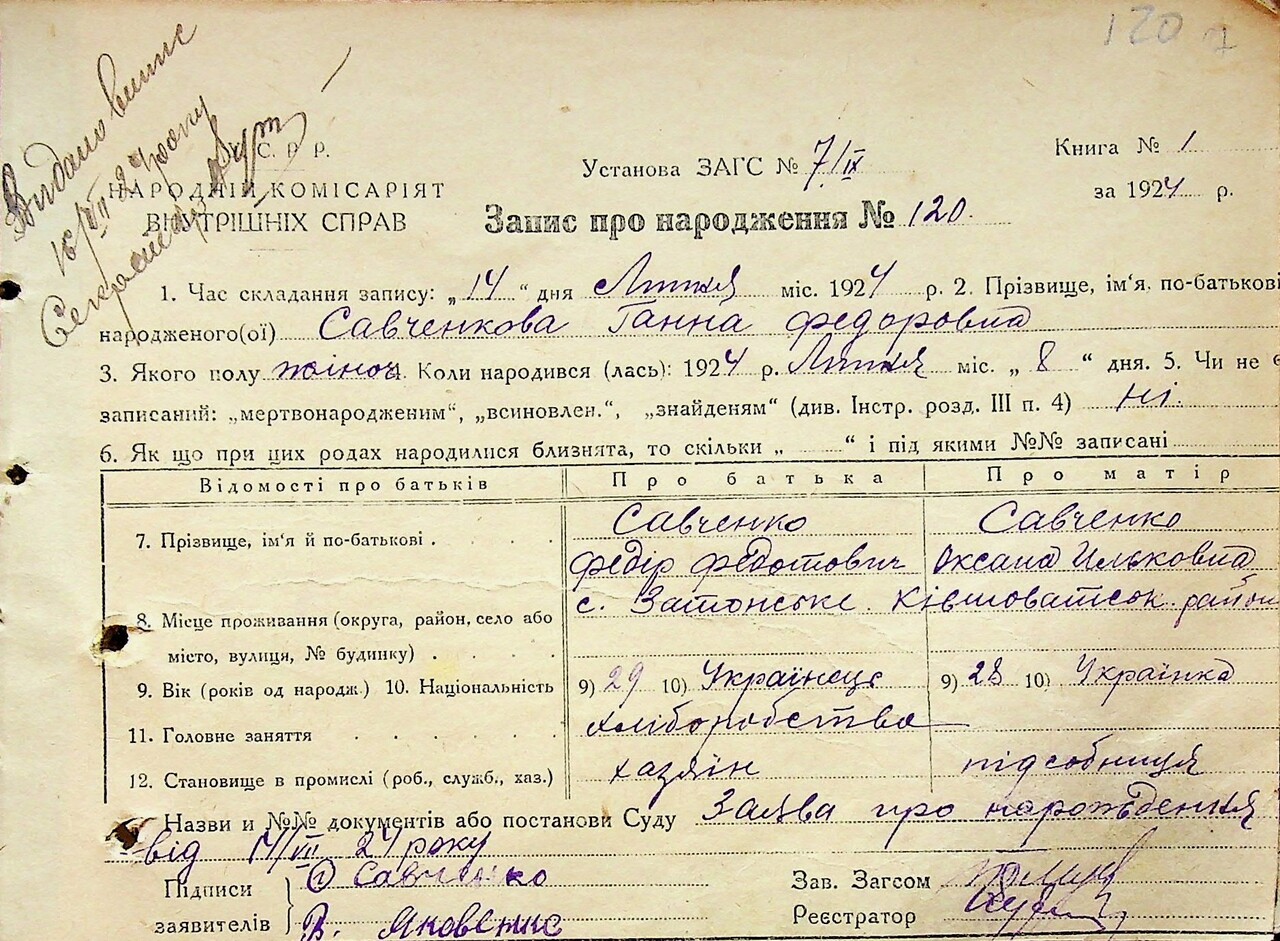 120
Видано випис
16/VII 24 року
Секретар
У. С. Р. Р.
НАРОДНІЙ КОМІСАРІЯТ
ВНУТРІШНІХ СПРАВ
Установа ЗАГС № 7/IX
Книга № 1
за 1924 р.
Запис про народження № 120.
1. Час складання запису: „14“ дня Липня міс. 1924 р. 2. Прізвище, ім‘я, по-батькові
народженого(ої) Савченкова Ганна Федоровна
3. Якого полу жіноч. 4. Коли народився (лась): 1924 р. Липня міс. „ 8 “ дня. 5. Чи не є
записаний: „мертвонародженим“, „всиновлен.“, „знайденям“ (див. Інстр. розд. III п. 4) Ні.
6. Як що при цих родах народилися близнята, то скільки „ “ і під якими №№ записані
Відомості про батьків Про батька Про матір
7. Прізвище, ім‘я й по-батькові . Савченко Савченко
Федір Федотович Оксана Ильковна
8. Місце проживання (округа, район, село або с. Затонське Ківшоватськ. район
місто, вулиця, № будинку)
9. Вік (років од народж.) 10. Національність 9) 29 10) Українець 9) 28 10) Українка
11. Головне заняття хліборобства
12. Становище в промислі (роб., служб., хаз.) хазяїн підсобниця
Назви и №№ документів або постанови Суду Заява про нарождення
від 14/VII 24 року
Підписи
заявителів
1) Савченко
В. Яковенко
Зав. Загсом
Реєстратор